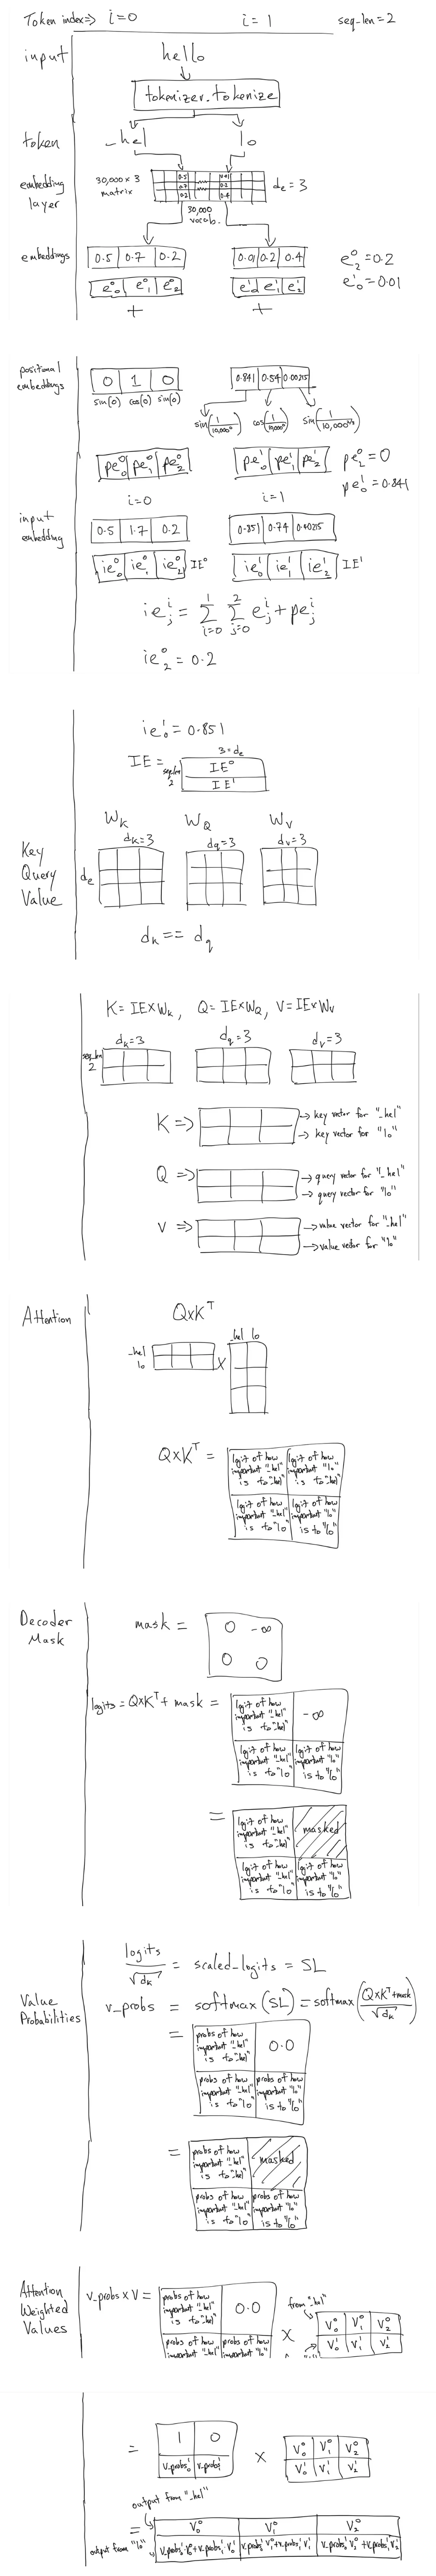 Token index=> i=0 i=1 seq-len=2
input hello
tokenizer.tokenize
token _hel lo
embedding layer 30,000 x 3 matrix 0.5 0.7 0.2 0.01 0.2 0.4 de=3
30,000 vocab.
embeddings 0.5 0.7 0.2 0.01 0.2 0.4 e⁰₂=0.2
e⁰₀ e⁰₁ e⁰₂ e¹₀ e¹₁ e¹₂ e¹₀=0.01
+ +
positional embeddings 0 1 0 0.841 0.54 0.00215
sin(0) cos(0) sin(0) sin(1/10,000⁰) cos(1/10,000⁰)
pe⁰₀ pe⁰₁ pe⁰₂ pe¹₀ pe¹₁ pe¹₂ pe⁰₂=0
pe¹₀=0.841
i=0 i=1
input embedding 0.5 1.7 0.2 0.851 0.74 0.00215
ie⁰₀ ie⁰₁ ie⁰₂ IE⁰ ie¹₀ ie¹₁ ie¹₂ IE¹
ieⁱⱼ = ∑¹ᵢ₌₀ ∑²ⱼ₌₀ eⁱⱼ + peⁱⱼ
ie⁰₂ = 0.2
ie¹₀ = 0.851
3=de
IE = seq-len 2 IE⁰
IE¹
W_K W_Q W_V
dk=3 dq=3 dv=3
Key Query Value de
dk == dq
K=IE×W_K, Q=IE×W_Q, V=IE×W_V
dk=3 dq=3 dv=3
seq-len 2
K => → key vector for "_hel"
→ key vector for "lo"
Q => → query vector for "_hel"
→ query vector for "lo"
V => → value vector for "_hel"
→ value vector for "lo"
Attention Q×Kᵀ
_hel lo
_hel
lo ×
Q×Kᵀ = logit of how important "_hel" is to "_hel" logit of how important "lo" is to "_hel"
logit of how important "_hel" is to "lo" logit of how important "lo" is to "lo"
Decoder Mask mask = 0 -∞
0 0
logits = Q×Kᵀ + mask = logit of how important "_hel" is to "_hel" -∞
logit of how important "_hel" is to "lo" logit of how important "lo" is to "lo"
= logit of how important "_hel" is to "_hel" masked
logit of how important "_hel" is to "lo" logit of how important "lo" is to "lo"
logits/√dk = scaled_logits = SL
Value Probabilities v_probs = softmax(SL) = softmax((Q×Kᵀ+mask)/√dk)
= probs of how important "_hel" is to "_hel" 0.0
probs of how important "_hel" is to "lo" probs of how important "lo" is to "lo"
= probs of how important "_hel" is to "_hel" masked
probs of how important "_hel" is to "lo" probs of how important "lo" is to "lo"
Attention Weighted Values v_probs × V = probs of how important "_hel" is to "_hel" 0.0 × from "_hel" V⁰₀ V⁰₁ V⁰₂
probs of how important "_hel" probs of how important "lo" V¹₀ V¹₁ V¹₂
= 1 0 × V⁰₀ V⁰₁ V⁰₂
v_probs¹₀ v_probs¹₁ V¹₀ V¹₁ V¹₂
output from "_hel"
= V⁰₀ V⁰₁ V⁰₂
output from "lo" v_probs¹₀·V⁰₀+v_probs¹₁·V¹₀ v_probs¹₀V⁰₁+v_probs¹₁V¹₁ v_probs¹₀V⁰₂+v_probs¹₁V¹₂